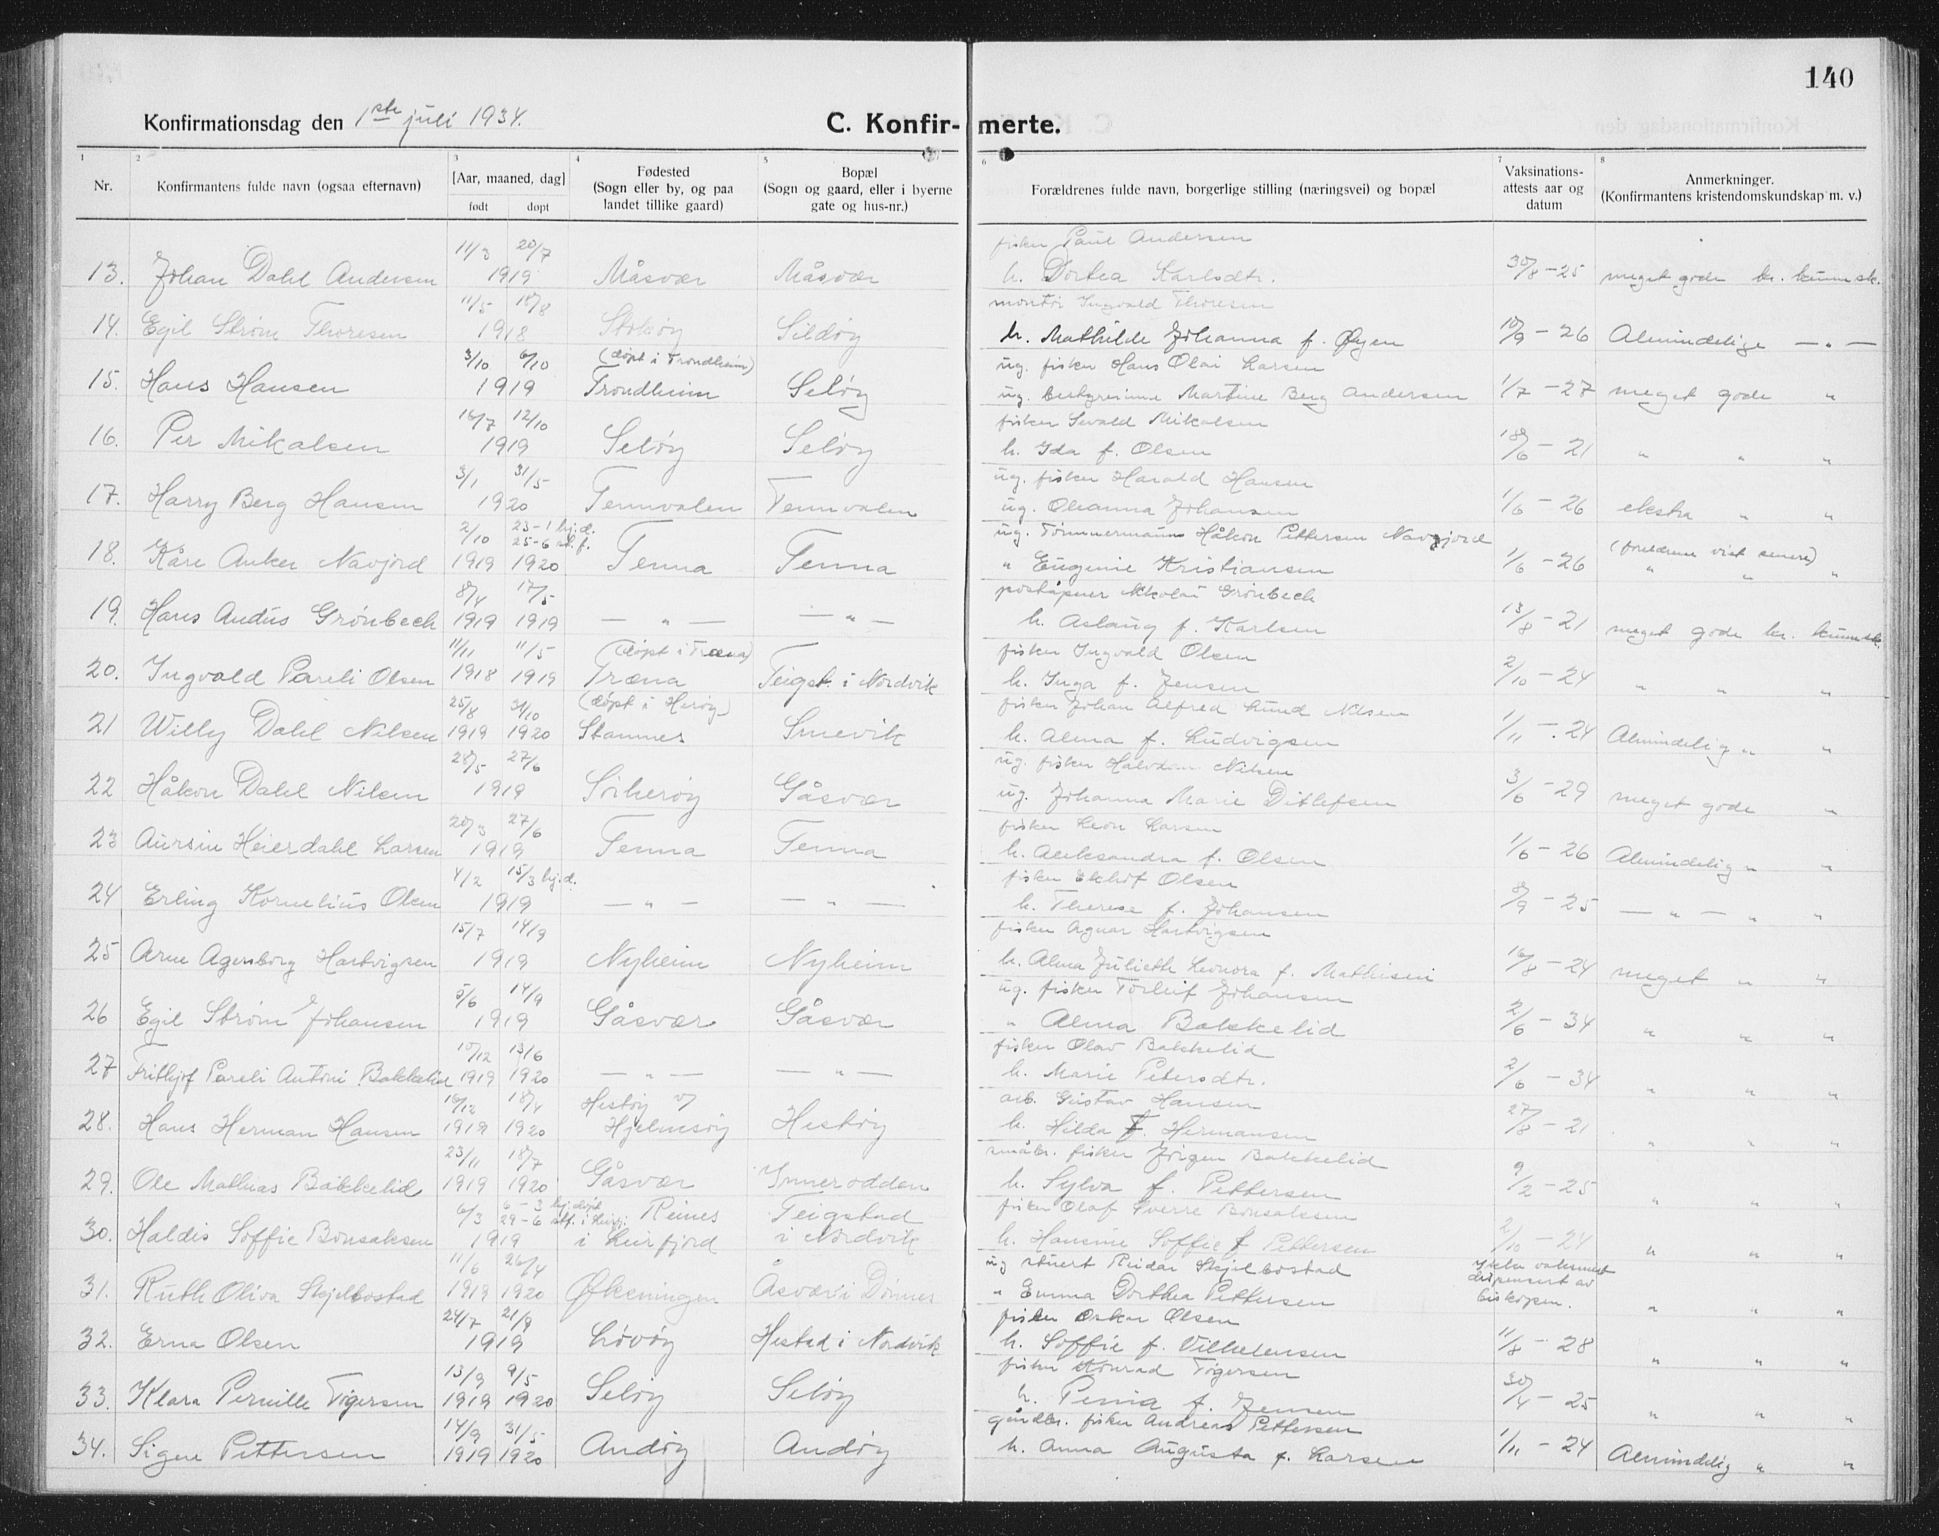 140
Konfirmationsdag den 1ste juli 1934.
C. Konfir- merte.
1 2 3 4 5 6 7 8
Nr.
Konfirmantens fulde navn (ogsaa efternavn)
[Aar, maaned, dag]
født døpt
Fødested
(Sogn eller by, og paa
landet tillike gaard)
Bopæl
(Sogn og gaard, eller i byerne
gate og hus-nr.)
Forældrenes fulde navn, borgerlige stilling (næringsvei) og bopæl
Vaksinations-
attests aar og
datum
Anmerkninger.
(Konfirmantens kristendomskundskap m. v.)
11/3 20/7 fisker Paul Andersen
13. Johan Dahl Andersen 1919 Måsvær Måsvær h. Dortea Karlsdtr. 30/8-25 meget gode kr. kunnsk.
11/5 18/8 montør Ingvald Thoresen
14. Egil Strøm Thoresen 1918 Sildøy h. Mathilde Johanna f. Øyen 10/9-26 Almindelige — " —
3/10 6/10 (døpt i Trondheim) ug. fisker Hans Olai Larsen
15. Hans Hansen 1919 Trondheim Seløy ug. bestyrerinne Martine Berg Andersen 1/7-27 meget gode "
16/7 12/10 fisker Sevald Mikalsen
16. Per Mikalsen 1919 Seløy Seløy h. Ida f. Olsen 18/6-21 " " "
3/1 31/5 ug. fisker Harald Hansen
17. Harry Berg Hansen 1920 Tennvalen Tennvalen ug. Oleanna Johansen 1/6-26 ekstra " "
2/10 23-1 hj.d. 25-6 st.f. ug. Tømmermann Håkon Pettersen Navjord
18. Kåre Anker Navjord 1919 1920 Tenna Tenna " Eugenie Kristiansen 1/6-26 (foreldrene viet senere) " " "
8/4 17/5 poståpner Nkolai Grønbech
19. Hans Andus Grønbech 1919 1919 — " — — " — h. Aslaug f. Karlsen 13/8-21 meget gode kr. kunnsk.
11/11 11/5 (døpt i Træna) fisker Ingvald Olsen
20. Ingvald Pareli Olsen 1918 1919 Træna Teigst. i Nordvik h. Inga f. Jensen 2/10-24 " " "
25/8 31/10 (døpt i Herøy) fisker Johan Alfred Lund Nilsen
21 Willy Dahl Nilsen 1919 1920 Stamnes Smevik h. Alma f. Ludvigsen 1/11-24 Almindelig " "
28/5 27/6 ug. fisker Halvdan Nilsen
22 Håkon Dahl Nilsen 1919 Sörherøy Gåsvær ug. Johanna Marie Ditlefsen 3/6-29 meget gode "
20/3 27/6 fisker Leon Larsen
23 Aursin Heierdahl Larsen 1919 Tenna Tenna h. Aleksandra f. Olsen 1/6-26 Almindelig " "
4/2 15/3 hj.d. fisker Olsen
24 Erling Kornelius Olsen 1919 — " — — " — h. Therese f. Johansen 8/9-25 — " — " "
15/7 14/9 fisker Agnar Hartvigsen
25 Arne Agenborg Hartvigsen 1919 Nyheim Nyheim h. Alma Julieth Leonora f. Mathisen 16/8-24 meget " "
5/6 14/9 ug. fisker Torleif Johansen
26 Egil Strøm Johansen 1919 Gåsvær Gåsvær " Alma Bakkelid 2/6-34 " " "
10/12 13/6 fisker Olav Bakkelid
27 Frithjof Pareli Antoni Bakkelid 1919 1920 — " — — " — h. Marie Petersdtr. 2/6-34 " " "
16/12 18/4 Hestøy v/ arb. Gustav Hansen
28. Hans Herman Hansen 1919 1920 Hjelmsøy Hestøy h. Hilda f. Hermansen 27/8-21 " " "
23/11 18/7 småbr. fisker Jørgen Bakkelid
29. Ole Mathias Bakkelid 1919 1920 Gåsvær Innerodden h. Sylva f. Pettersen 9/2-25 " " "
6/3 6-3 hj.døpt 29-6 Reines Teigstad fisker Olaf Sverre Bonsaksen
30. Haldis Soffie Bonsaksen 1919 i Leirfjord i Nordvik h. Hansine Soffie f Pettersen 2/10-24 " " "
11/6 26/4 ug stuert Reidar Skjelbostad
31. Ruth Oliva Skjelbostad 1919 1920 Økeningen Åsvær i Dönnes " Emma Dorthea Pettersen dispensert av biskopen. " " "
24/7 21/9 fisker Oskar Olsen
32. Erna Olsen 1919 Løvøy Hestad i Nordvik h. Soffie f. Vilhelmsen 11/8-28 " " "
13/9 9/5 fisker Konrad Tøgersen
33. Klara Pernille Tøgersen 1919 1920 Seløy Seløy h. Penia f. Jensen 30/4-25 " " "
14/9 31/5 gårdbr. fisker Andreas Pettersen
34. Signe Pettersen 1919 1920 Andøy Andøy h. Anna Augusta f. Larsen 1/11-24 Almindelig " "